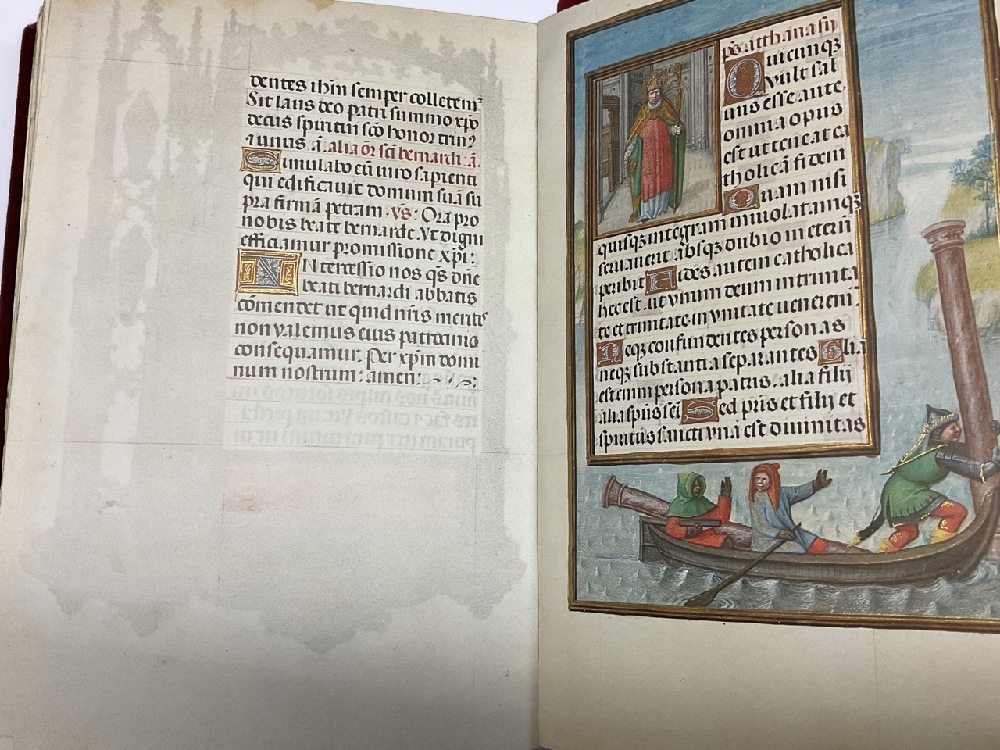 dentes ihm semper colletem²
Sit laus deo patri summo xpo
decus spiritui sco honor trin²
⁊ unus. a. alia or sci bernardi. a.
Simulabo cu uiro sapienti
qui edificauit domum sua su
pra firma petram. ys: Ora pro
nobis beate bernarde. Vt digni
efficiamur promissione xpi:
INtercessio nos qs dne
beati bernardi abbatis
comendet ut quid nris meritis
non valemus eius patrocinio
consequamur. Per xpm domi
num nostrum: amen:
ps atthanasii
Quicunqz
vult sal
uus esse ante
omnia opus
est ut teneat ca
tholica fidem
Quam nisi
quisqz integram inuiolatamqz
seruauerit absqz dubio in eternu
peribit Fides autem catholica
hec est. ut vnum deum in trinita
te et trinitate in vnitate ueneremr
Neqz confundentes personas
neqz substantia separantes Alia
est enim persona patris. alia filii
alia spus sci Sed pris et filii et
spiritus sancti vna est diuinitas